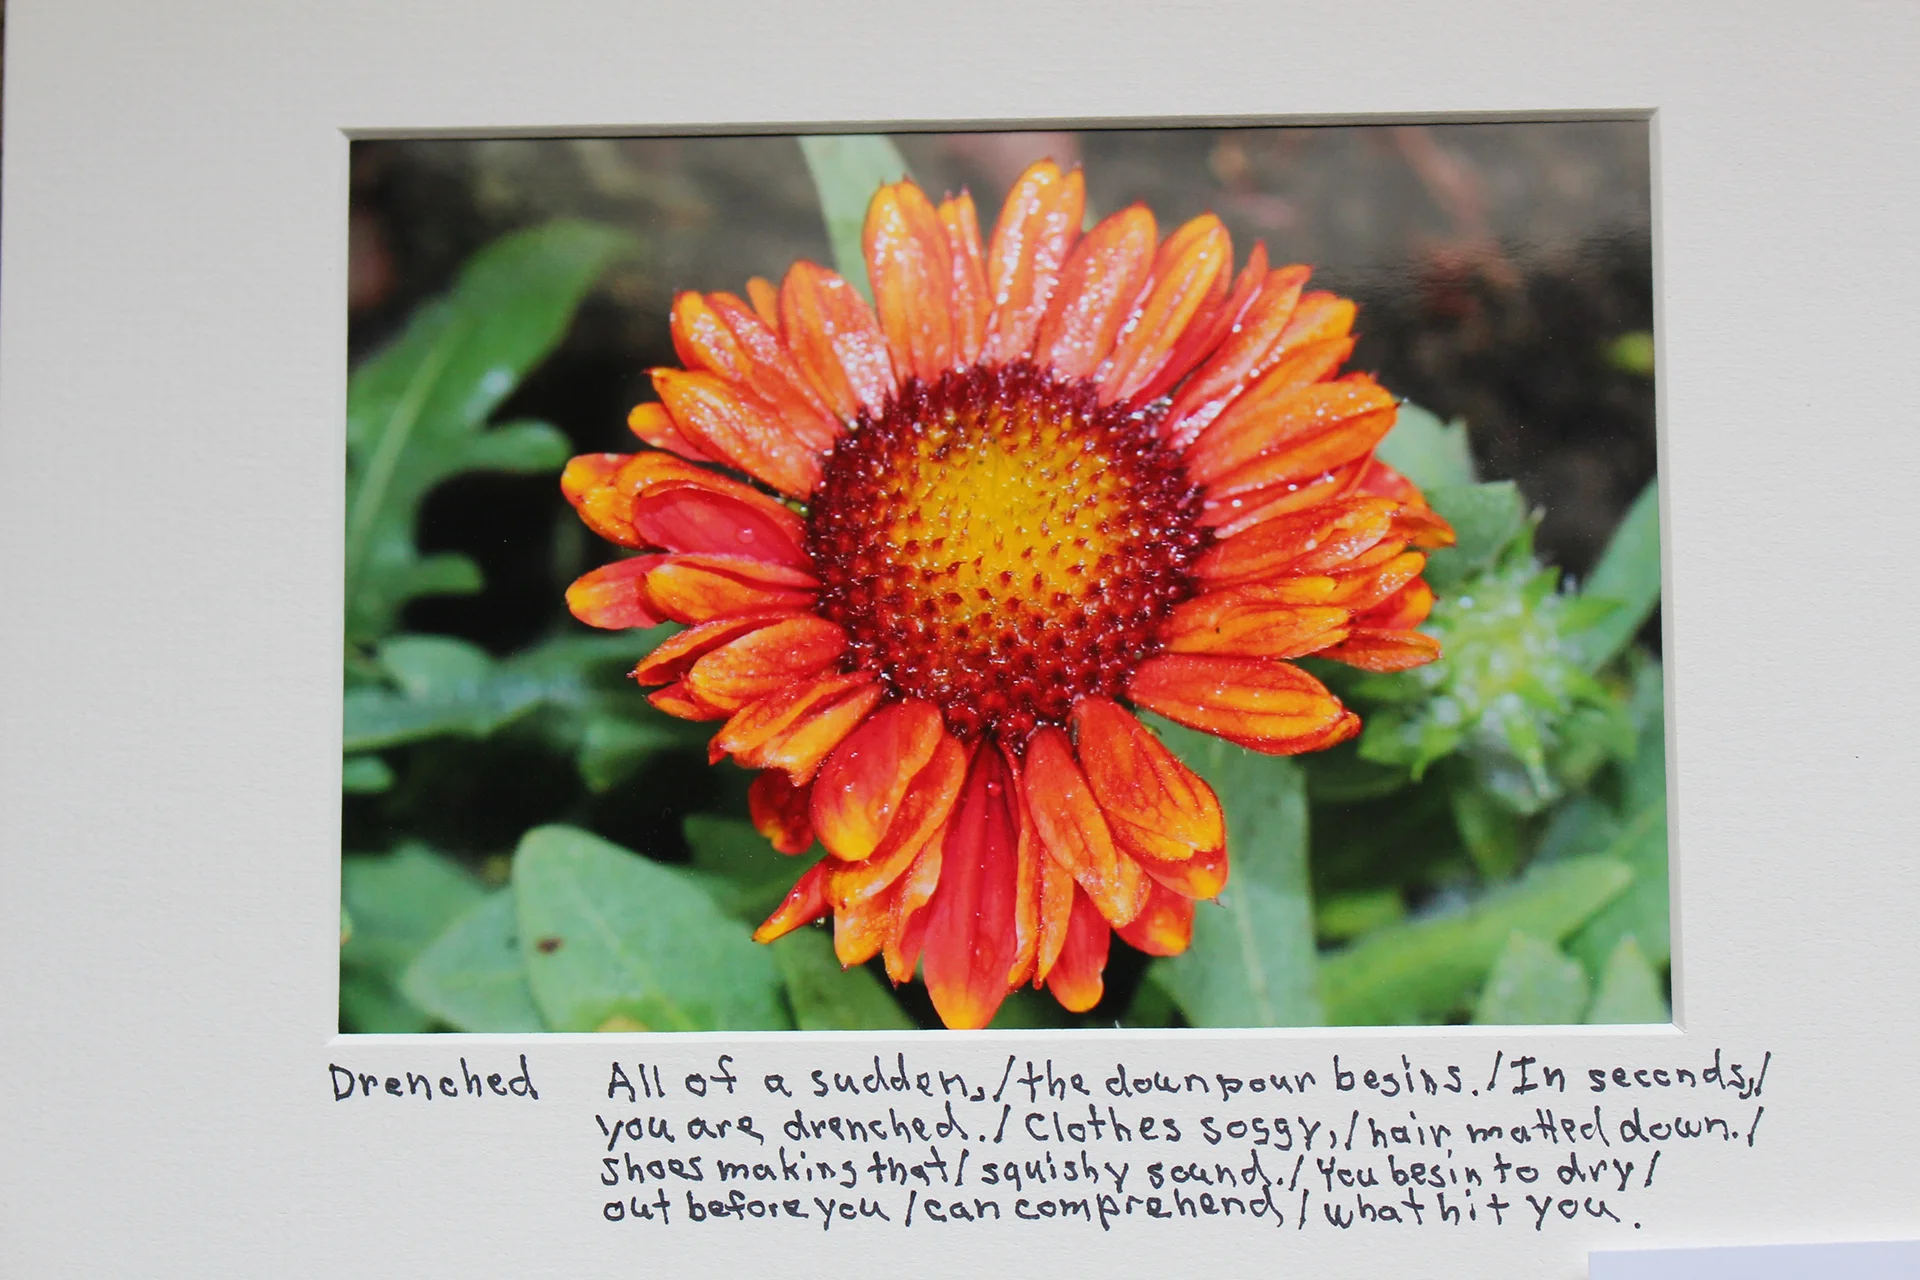 Drenched All of a sudden,/the downpour begins./In seconds,/
you are drenched./Clothes soggy,/hair matted down./
Shoes making that/squishy sound./You begin to dry/
out before you/can comprehend/what hit you.